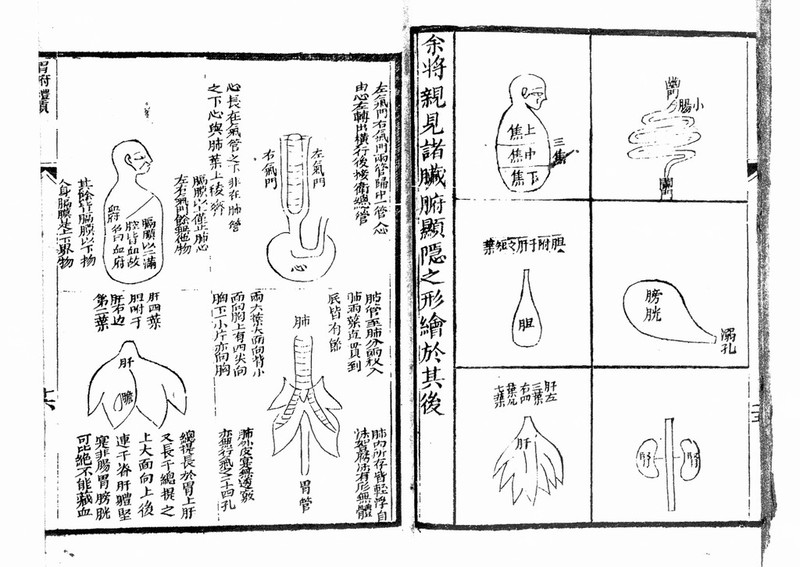 幽門
小腸
闌門
膀胱
溺孔
腎
腎
三焦
上焦
中焦
下焦
胆附于肝之短葉
胆
肝左三葉
右四葉
凡七葉
肝
余將親見諸臟腑顯隱之形繪於其後
左氣門右氣門兩管歸中一管
由心左轉出橫行後接衛總管
心長在氣管之下非在肺管
之下心與肺葉上稜齊
左氣門
右氣門
心
膈膜以上僅止肺心
左右氣門餘無他物
膈膜以上滿
腔皆血故
名曰血府
血府
其餘皆膈膜以下物
人身膈膜是上下界物
肺管至肺分兩杈入
肺兩葉直貫到
底皆有節
肺
胃管
肺內所存皆輕浮白
沫如荳腐沫有形無體
兩大葉大面向背小
面向胸上有四尖向
胸下一小片亦向胸
肺外皮實無透竅
亦無行氣之二十四孔
肝四葉
胆附于
肝右边
第二葉
肝
膽
總提長於胃上肝
又長于總提之
上大面向上後
連于脊肝體堅
實非腸胃膀胱
可比絕不能藏血